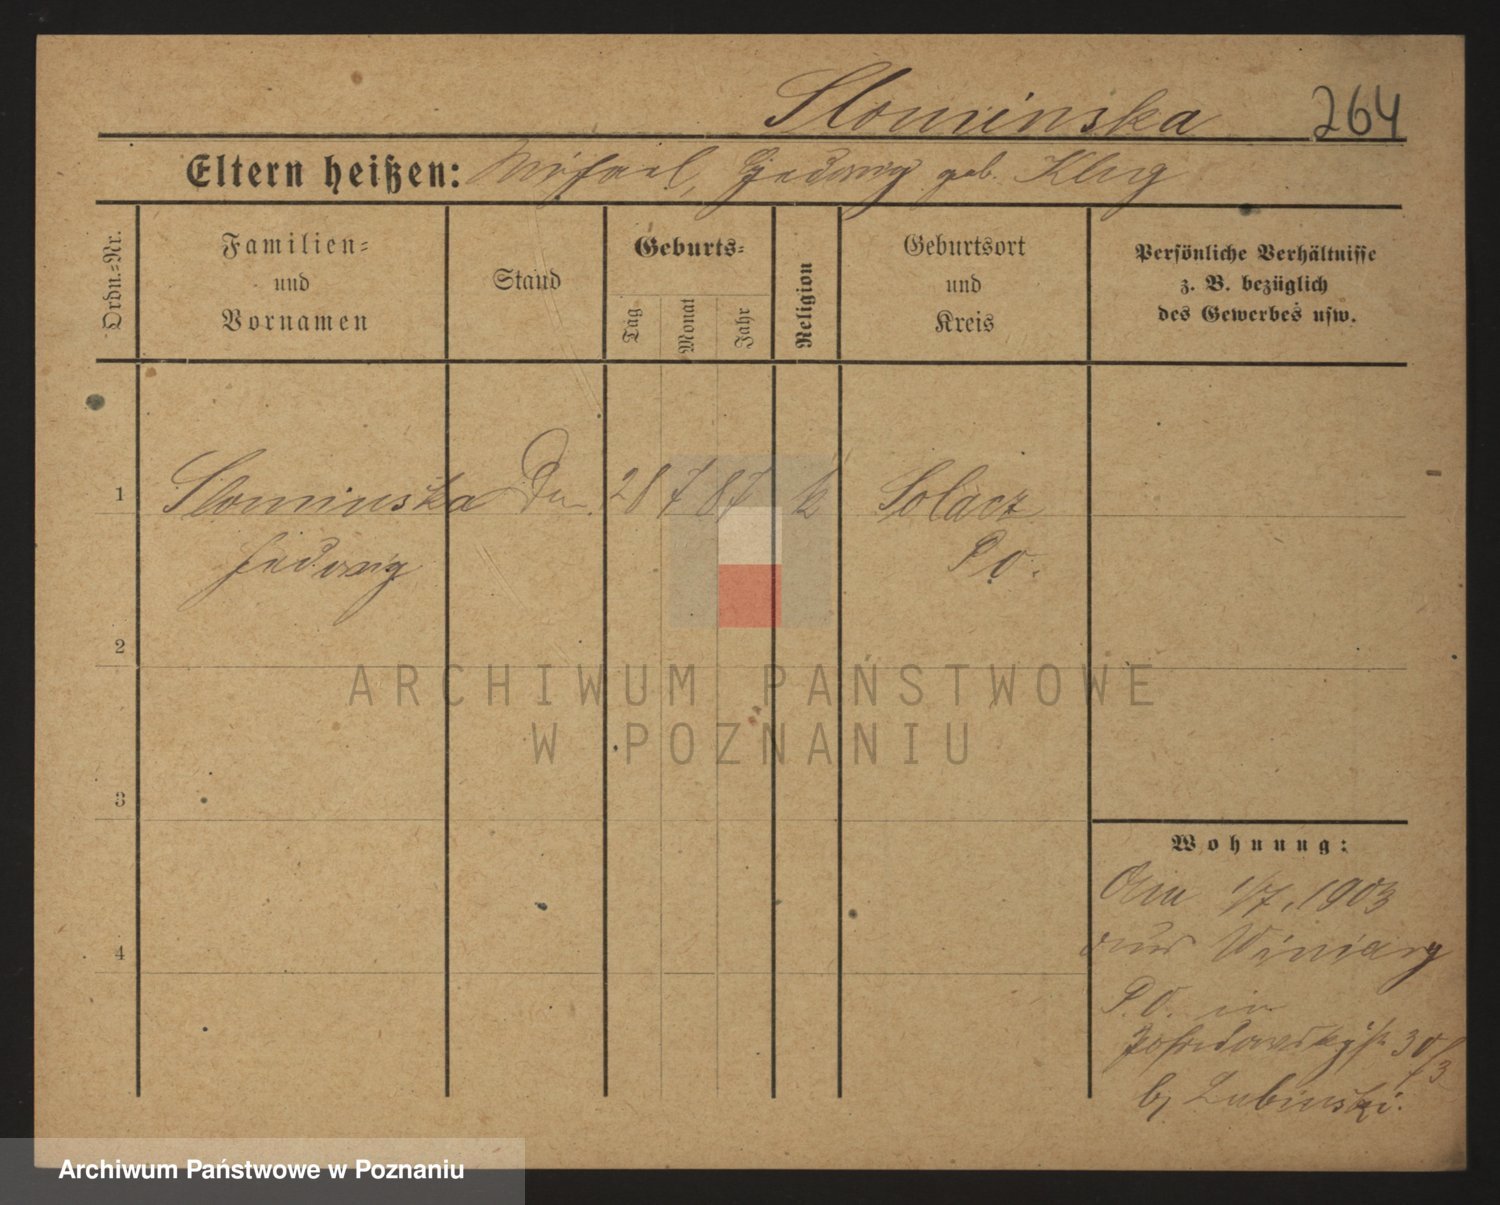 Slominska 264
Eltern heißen: Michael, Hedwig geb. Klug
Ordn.=Nr.
Familien=
und
Vornamen
Stand
Geburts=
Tag
Monat
Jahr
Religion
Geburtsort
und
Kreis
Persönliche Verhältnisse
z. B. bezüglich
des Gewerbes usw.
1 Slominska 28 7 87 k Solacz
Hedwig P O.
2
ARCHIWUM PAŃSTWOWE
W POZNANIU
3
Wohnung:
1/7. 1903
aus Winiary
4
P. O. in
30/3
b/ Lubinski.
Archiwum Państwowe w Poznaniu